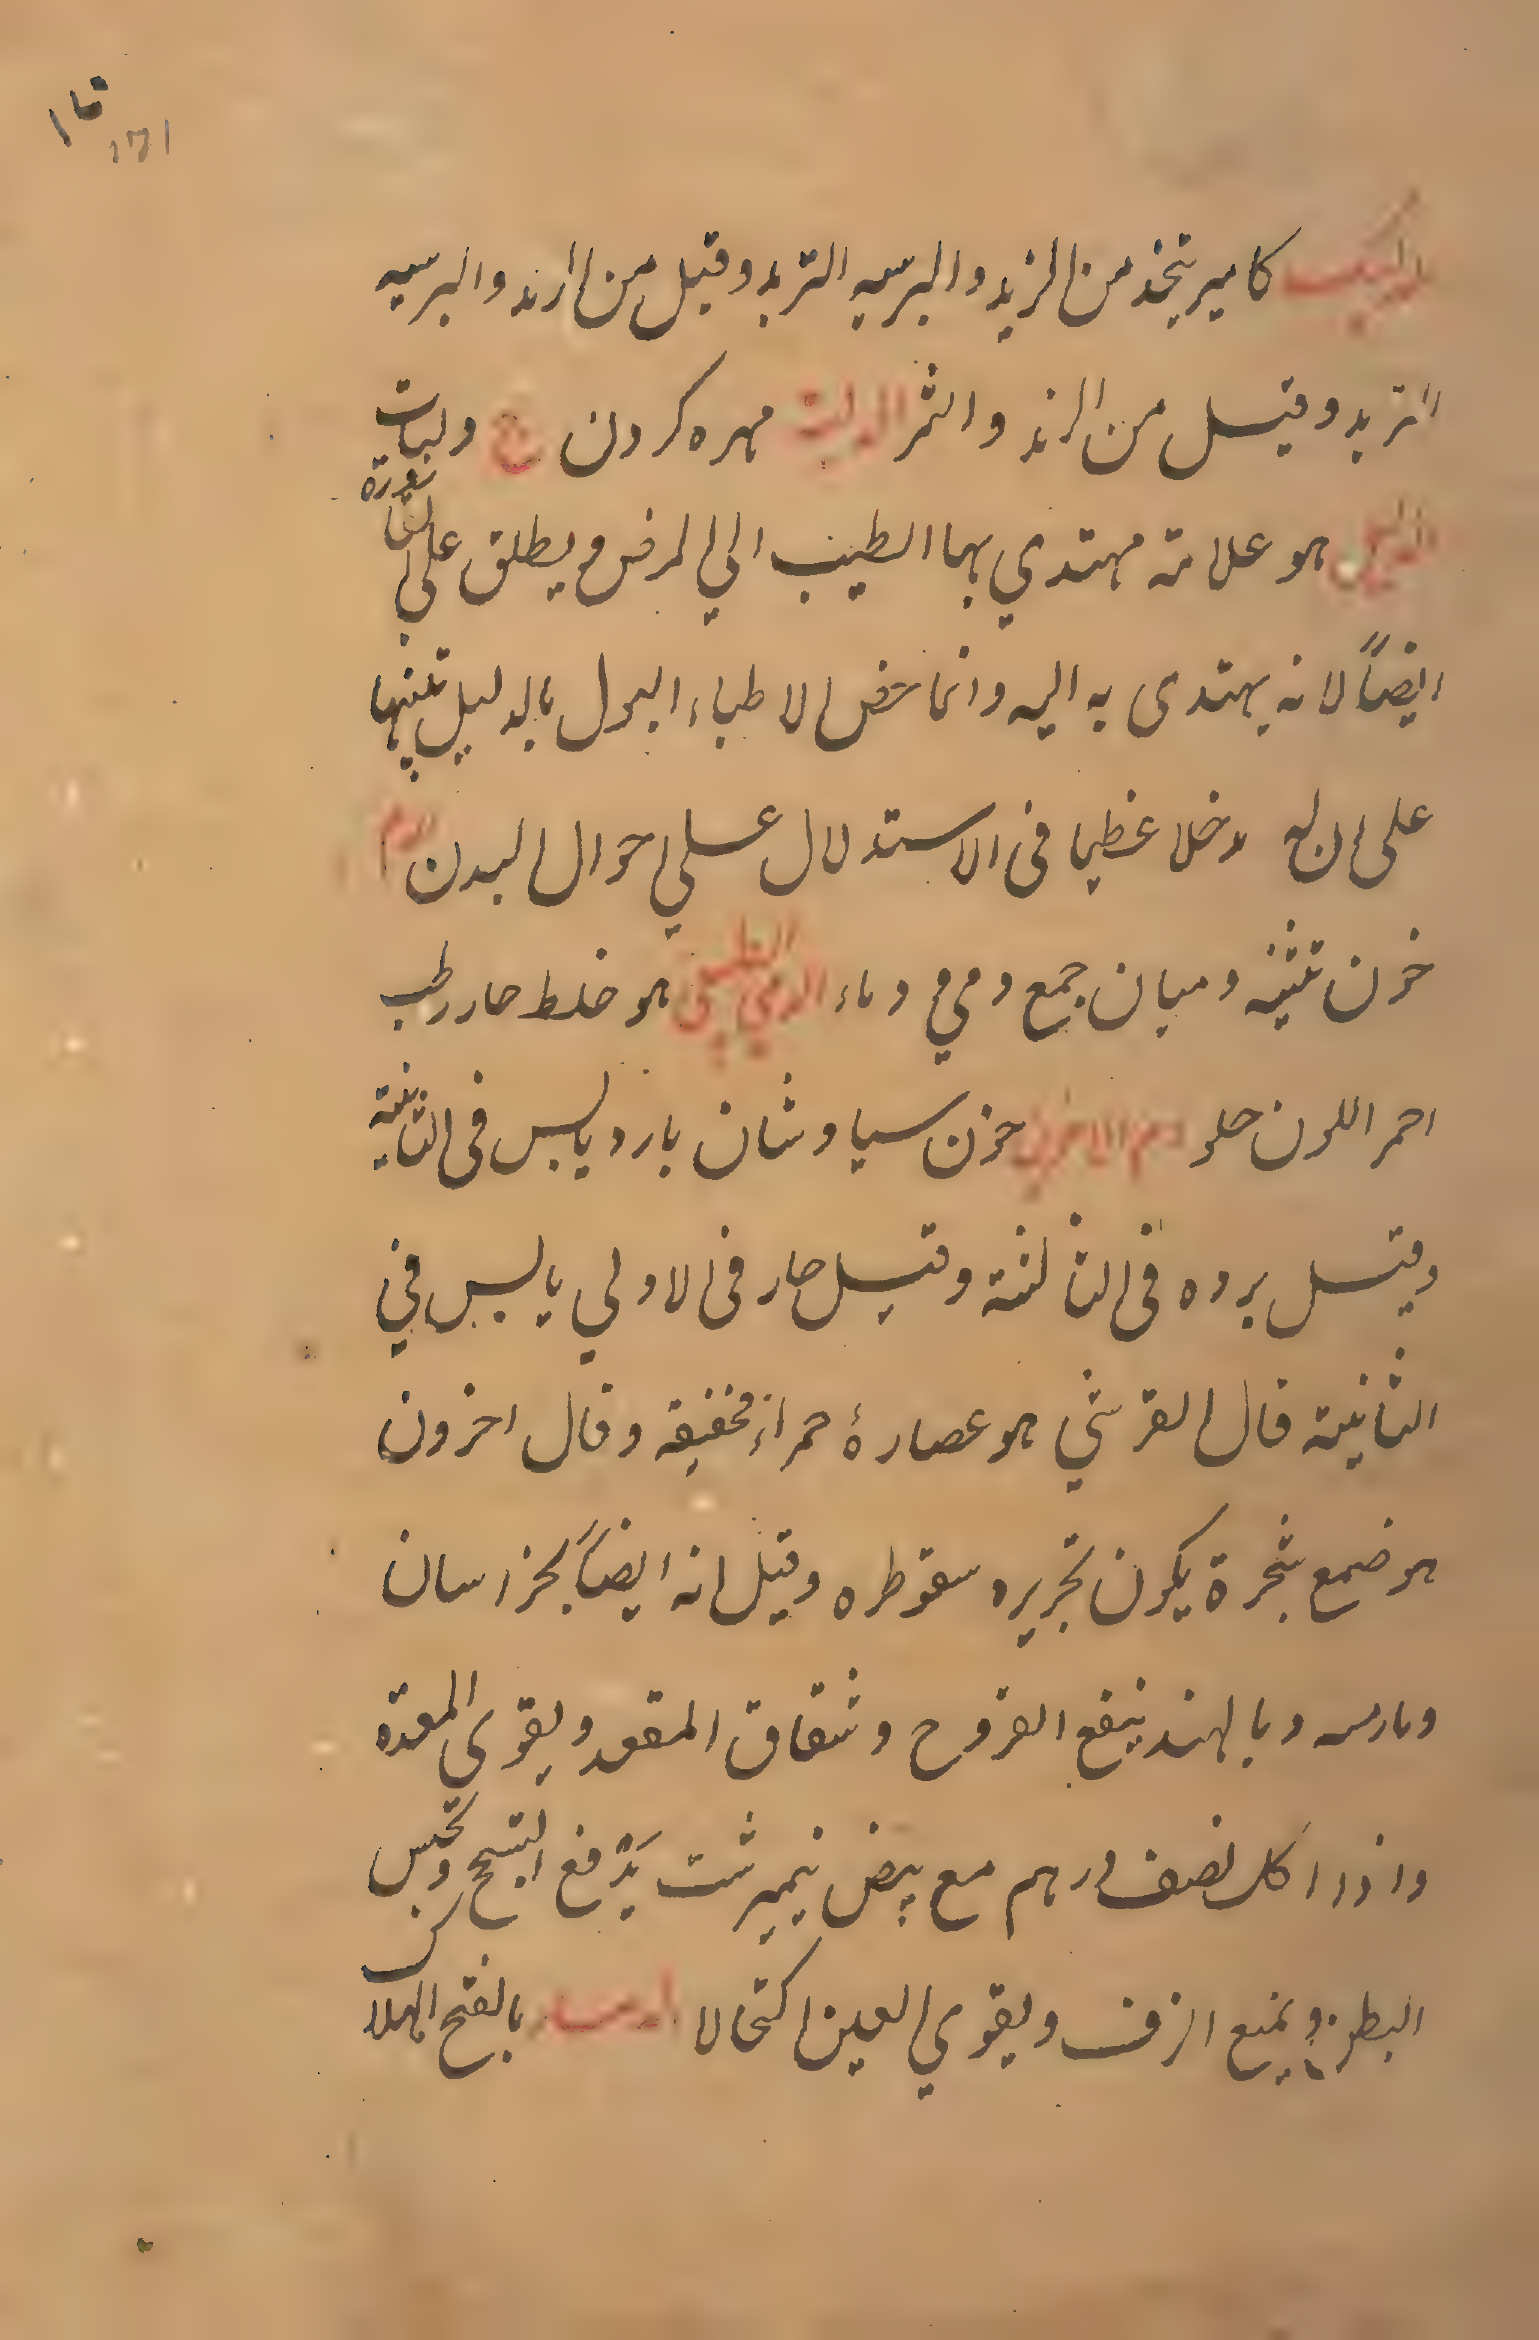 كامير يتخذ من الزبد والبرسيه التربد وقيل من الزند والبرسيه
التربد وقيل من الزند والثمر مهره كردن ج
الدليل هو علامة مهتدي بها الطبيب الي المرض ويطلق علي القارورة
ايضاً لانه يهتدى به اليه وانما خص الاطباء البول بالدليل تنبيها
على ان له دخلا عظيما فى الاستدلال علي احوال البدن الدم
خون تثنيه وميان جمع دمي ودماء الدم الطبيعي هو خلط حار رطب
احمر اللون حلو دم الاخوين خون سياوشان بارد يابس فى الثانية
وقيل برده فى الثالثة وقيل حار فى الاولي يابس في
الثانية قال القرشي هو عصارۀ حمراء مخفيقه وقال اخرون
هو ضمع شجرة يكون بجزيره سقوطره وقيل انه ايضاً بخراسان
وبالهند ينفع القروح وشقاق المقعد ويقوى المعدة
واذا اكل نصف درهم مع بيض نيمبرشت يدفع السحج وتحبس
البطن ويمنع النزف ويقوي العين اكتحالا بالفتح الهلا